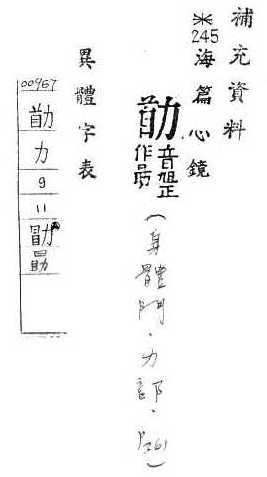 補充資料
※245
海篇心鏡
音旭正
作勗
(身體門.力部.P261)
異體字表
00967
力
9
11
勖
勗